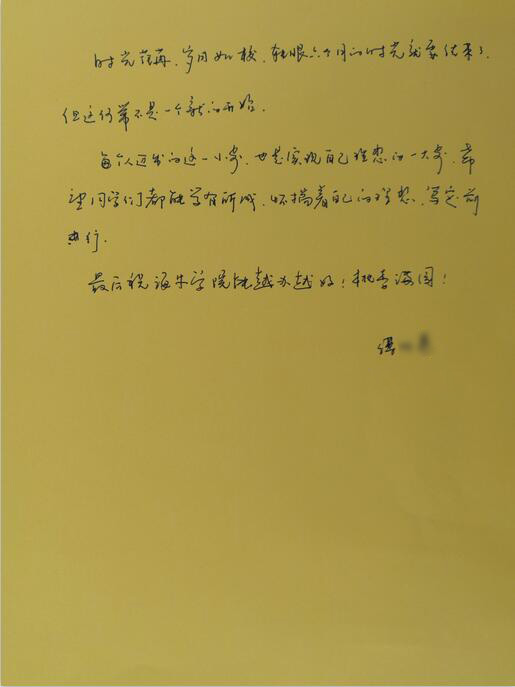 时光荏苒、岁月如梭、转眼六个月的时光就要结束了、
但这何常不是一个新的开始.
每个人迈出的这一小步, 也是实现自己理想的一大步, 希
望同学们都能学有所成, 怀揣着自己的理想, 笃定前
行.
最后祝海牛学院能越办越好! 桃李满园!